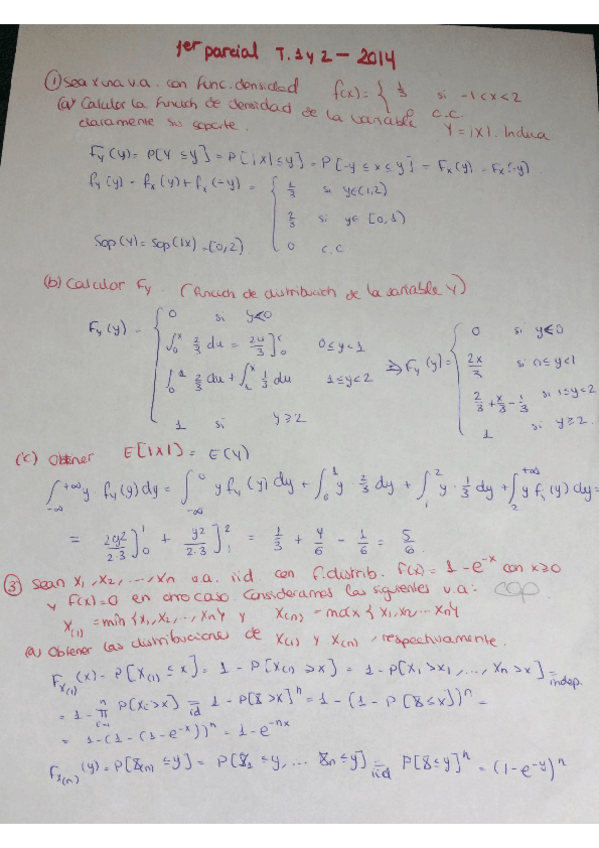 1er parcial T.1 y 2 - 2014
① Sea X una v.a. con func. densidad f(x) = { 1/3 si -1<x<2
c.c
(a) Calcular la función de densidad de la variable Y=|X|. Indica
claramente su soporte.
F_Y(y) = P[Y≤y] = P[|X|≤y] = P[-y≤x≤y] = F_X(y) - F_X(-y)
f_Y(y) = f_X(y) + f_X(-y) = { 1/3 si y∈(1,2)
2/3 si y∈[0,1)
0 c.c
Sop(Y) = Sop(|X|) = [0,2)
(b) Calcular F_Y. (función de distribución de la variable Y)
F_Y(y) = { 0 si y≤0
∫_0^x 2/3 du = 2u/3 ]_0^x 0≤y<1
∫_0^1 2/3 du + ∫_1^x 1/3 du 1≤y<2
1 si y≥2
⇒ F_Y(y) = { 0 si y≤0
2x/3 si 0≤y<1
2/3 + x/3 - 1/3 si 1≤y<2
1 si y≥2.
(c) Obtener E[|X|] = E(Y)
∫_{-∞}^{+∞} y · f_Y(y) dy = ∫_{-∞}^0 y f_Y(y) dy + ∫_0^1 y 2/3 dy + ∫_1^2 y · 1/3 dy + ∫_2^{+∞} y f_Y(y) dy =
= 2y²/2·3 ]_0^1 + y²/2·3 ]_1^2 = 1/3 + 4/6 - 1/6 = 5/6.
③ Sean X1, X2, ..., Xn v.a. iid con f.distrib. F(x) = 1-e^{-x} con x≥0
y F(x)=0 en otro caso. Consideramos las siguientes v.a:
X_(1) = min{X1, X2, ..., Xn} y X_(n) = max{X1, X2 ... Xn}
(a) Obtener las distribuciones de X_(1) y X_(n), respectivamente.
F_{X(1)}(x) = P[X_(1) ≤ x] = 1 - P[X_(1) > x] = 1 - P[X1 > x, ..., Xn > x] = indep.
= 1 - ∏_{i=1}^n P[Xi > x] =_{id} 1 - P[X > x]^n = 1 - (1 - P[X≤x])^n =
= 1 - (1 - (1-e^{-x}))^n = 1 - e^{-nx}
F_{X(n)}(y) = P[X_(n) ≤ y] = P[X1 ≤ y, ... Xn ≤ y] =_{iid} P[X≤y]^n = (1-e^{-y})^n